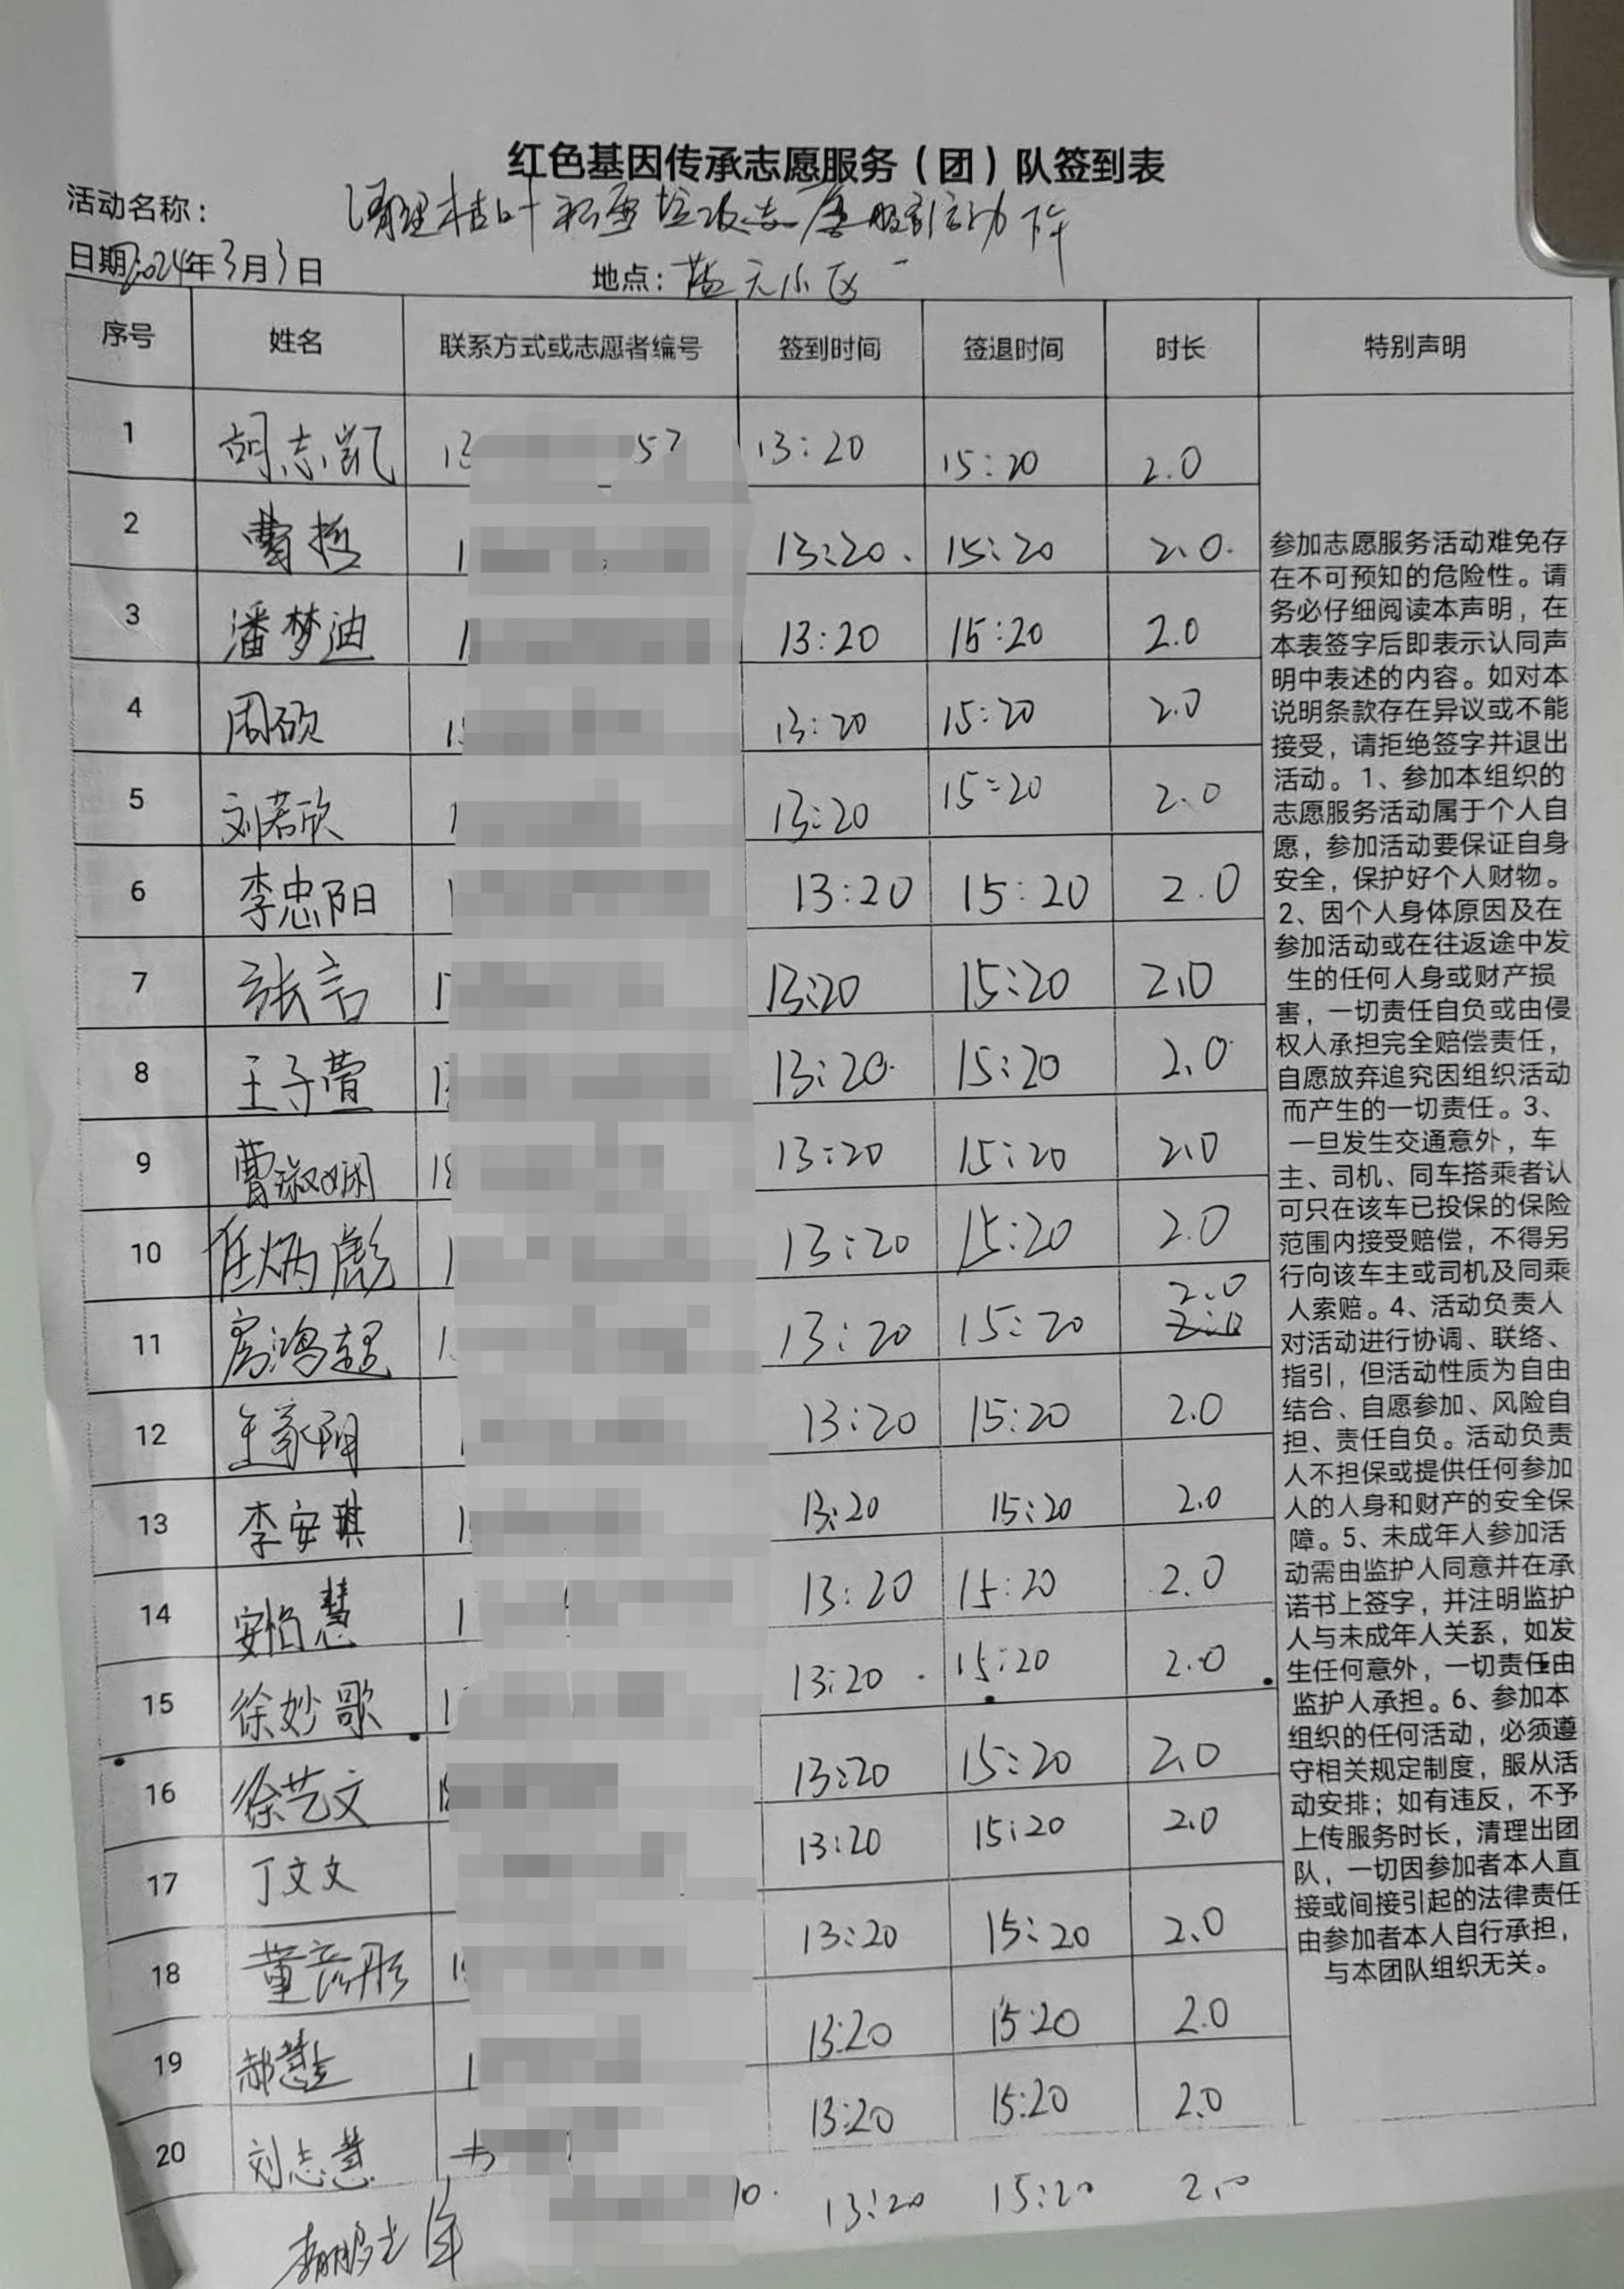 红色基因传承志愿服务（团）队签到表
活动名称： 清理枯叶积雪垃圾志愿服务活动 下午
日期2024年3月3日 地点：蓝天小区
序号 姓名 联系方式或志愿者编号 签到时间 签退时间 时长 特别声明
1 胡志凯 13 57 13:20 15:20 2.0
2 曹哲 1 13:20. 15:20 2.0.
3 潘梦迪 1 13:20 15:20 2.0
4 周欣 13:20 15:20 2.0
5 刘若欣 1 13:20 15:20 2.0
6 李忠阳 1 13:20 15:20 2.0
7 张言 1 13:20 15:20 2.0
8 王子萱 1 13:20 15:20 2.0
9 曹淑娴 18 13:20 15:20 2.0
10 任炳彪 1 13:20 15:20 2.0
11 房鸿超 1 13:20 15:20 2.0
12 王家阳 13:20 15:20 2.0
13 李安琪 1 13:20 15:20 2.0
14 安怡慧 1 13:20 15:20 2.0
15 徐妙歌 1 13:20 15:20 2.0
16 徐艺文 13:20 15:20 2.0
17 丁文文 13:20 15:20 2.0
18 董彦彤 1 13:20 15:20 2.0
19 郝慧 1 13:20 15:20 2.0
20 刘志慧 13:20 15:20 2.0
10. 13:20 15:20 2.0
参加志愿服务活动难免存
在不可预知的危险性。请
务必仔细阅读本声明，在
本表签字后即表示认同声
明中表述的内容。如对本
说明条款存在异议或不能
接受，请拒绝签字并退出
活动。1、参加本组织的
志愿服务活动属于个人自
愿，参加活动要保证自身
安全，保护好个人财物。
2、因个人身体原因及在
参加活动或在往返途中发
生的任何人身或财产损
害，一切责任自负或由侵
权人承担完全赔偿责任，
自愿放弃追究因组织活动
而产生的一切责任。3、
一旦发生交通意外，车
主、司机、同车搭乘者认
可只在该车已投保的保险
范围内接受赔偿，不得另
行向该车主或司机及同乘
人索赔。4、活动负责人
对活动进行协调、联络、
指引，但活动性质为自由
结合、自愿参加、风险自
担、责任自负。活动负责
人不担保或提供任何参加
人的人身和财产的安全保
障。5、未成年人参加活
动需由监护人同意并在承
诺书上签字，并注明监护
人与未成年人关系，如发
生任何意外，一切责任由
监护人承担。6、参加本
组织的任何活动，必须遵
守相关规定制度，服从活
动安排；如有违反，不予
上传服务时长，清理出团
队，一切因参加者本人直
接或间接引起的法律责任
由参加者本人自行承担，
与本团队组织无关。